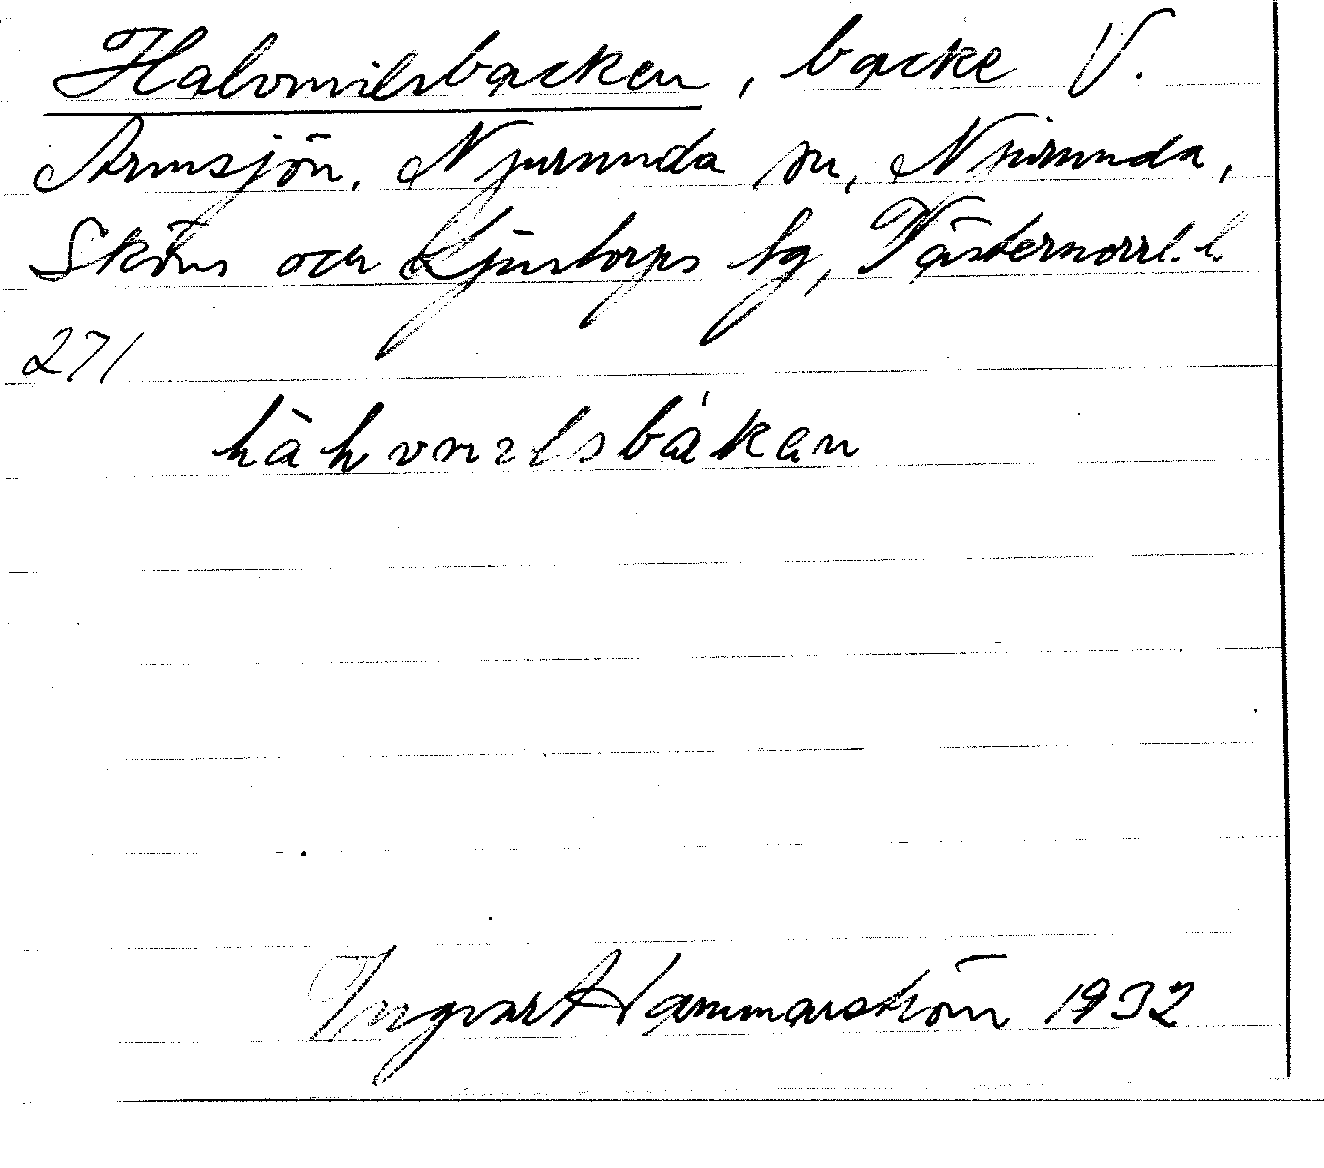 Halvmilsbacken, backe V.
Armsjön, Njurunda sn, Njurunda,
Sköns och Ljustorps tg, Västernorrl. l.
271
hàhvmılsbákan
Ingvar Hammarström 1932